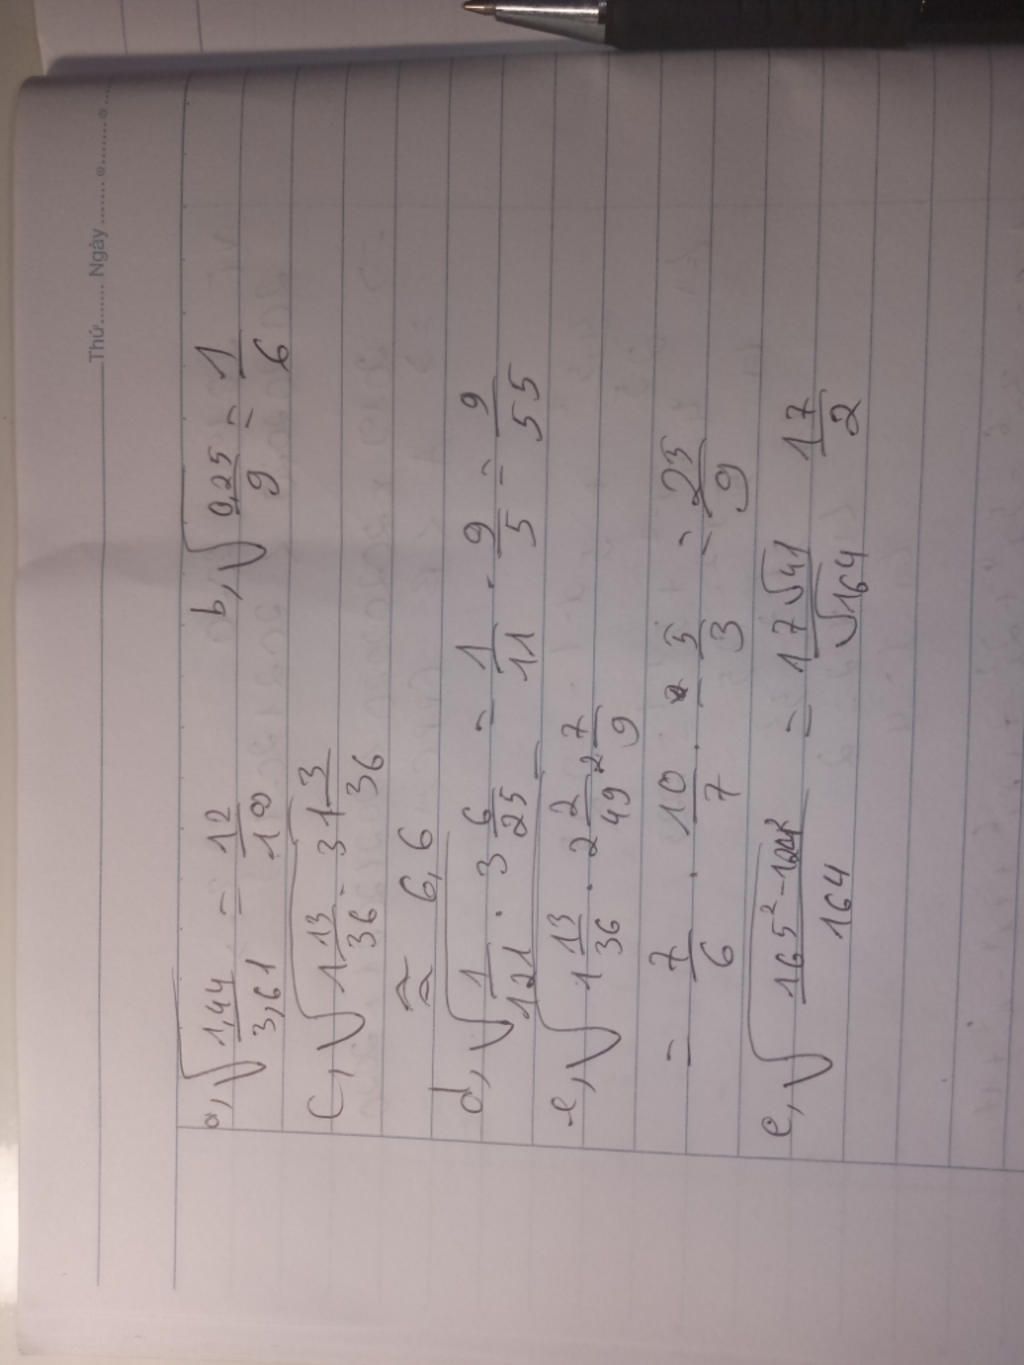 Thứ....... Ngày ....... e ....... e ...
a, √(1,44/3,61) = 12/19 b, √(0,25/9) = 1/6
c, √(1 13/36 · 3 13/36)
≈ 6,6
d, √(1/121 · 3 6/25) = 1/11 · 9/5 = 9/55
e, √(1 13/36 · 2 2/49 · 2 7/9)
= 7/6 · 10/7 · 5/3 = 25/9
e, √((165² - 124²)/164) = 17√41/√164 17/2